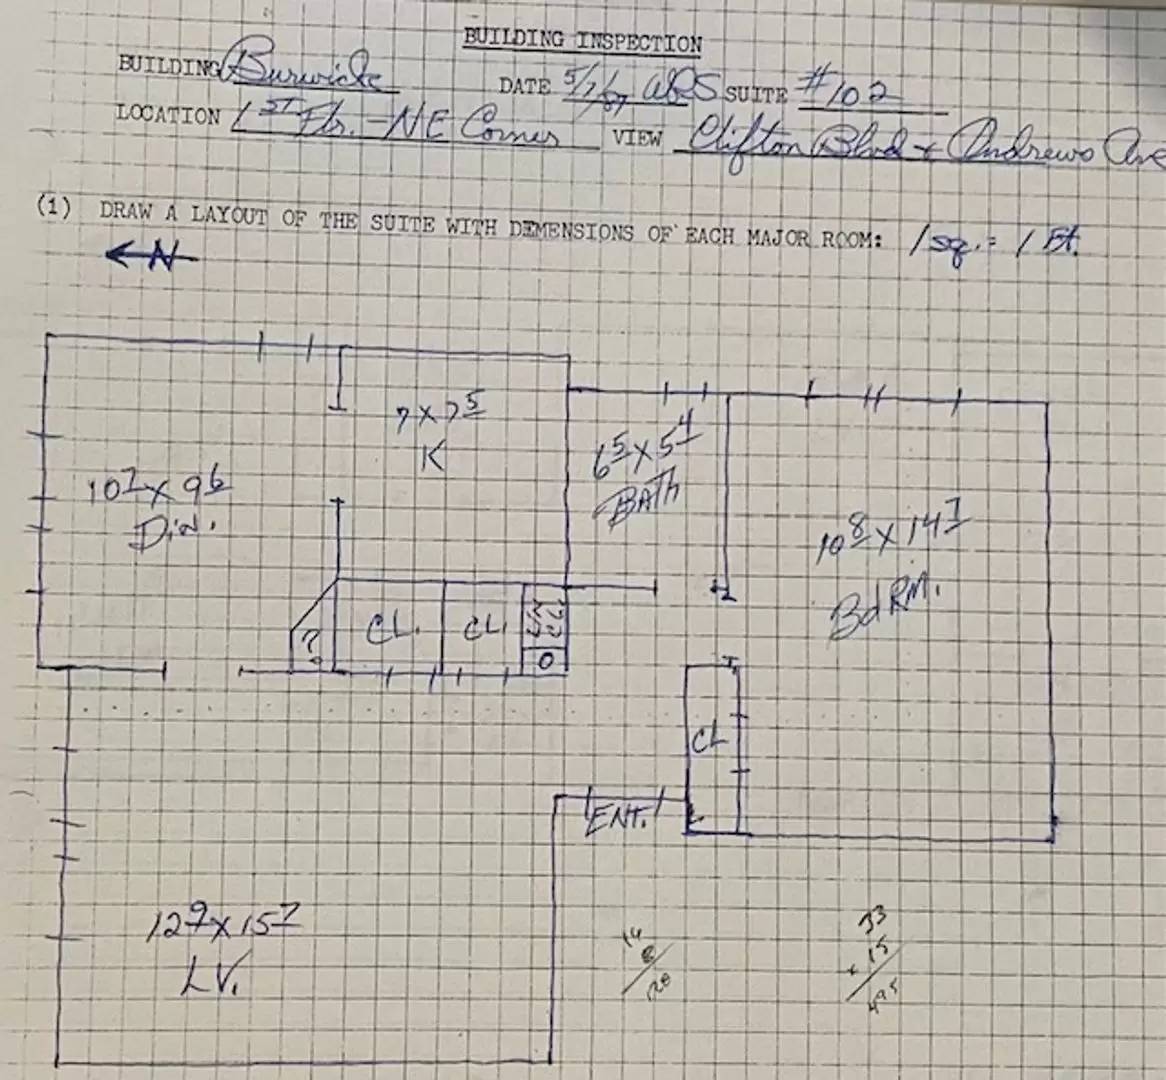 BUILDING INSPECTION
BUILDING Burwicke DATE 5/7/87 WRS SUITE #102
LOCATION 1ST Flr. - NE Corner VIEW Clifton Blvd + Andrews Ave
(1) DRAW A LAYOUT OF THE SUITE WITH DEMENSIONS OF EACH MAJOR ROOM: 1 sq. = 1 Ft.
N
7 x 7 5
K
6 5 x 5 4
BATH
10 7 x 9 6
Din.
10 8 x 14 7
Bd RM.
?
CL.
CL.
O
CL
ENT.
12 9 x 15 7
LV.
14
8
33
x 15
495